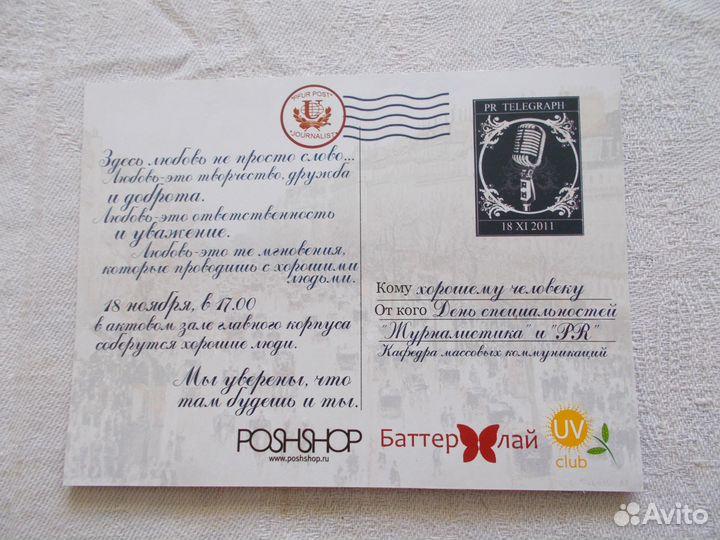 IFUR POST
U
JOURNALIST
PR TELEGRAPH
18 XI 2011
Здесь любовь не просто слово...
Любовь-это творчество, дружба
и доброта.
Любовь-это ответственность
и уважение.
Любовь-это те мгновения,
которые проводишь с хорошими
людьми.
18 ноября, в 17.00
в актовом зале главного корпуса
соберутся хорошие люди.
Мы уверены, что
там будешь и ты.
Кому хорошему человеку
От кого День специальностей
"Журналистика" и "PR"
Кафедра массовых коммуникаций
POSHSHOP
www.poshshop.ru
Баттер лай
UV
club
Avito